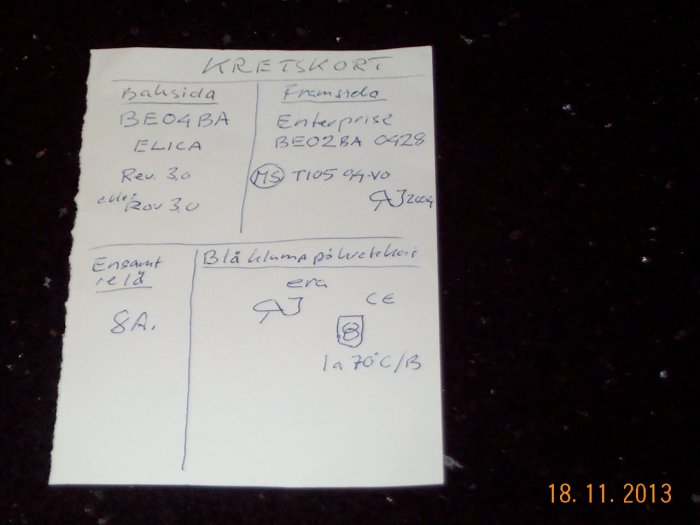 KRETSKORT
Baksida
BE04BA
ELICA
Rev. 3,0
eller
Rov 3,0
Framsida
Enterprise
BE02BA 0428
MS T105 94-V0
2004
Ensamt
relä
8A.
Blå klump på
era
CE
8
1a 70°C/B
18.11.2013